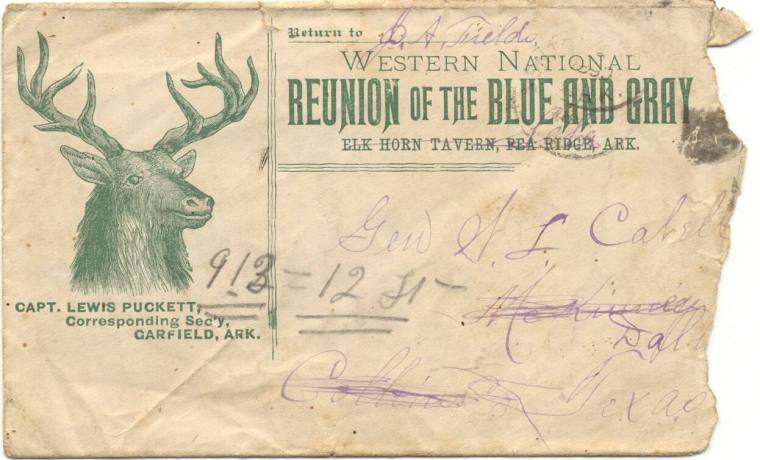 Return to J. A. Fields,
WESTERN NATIONAL
REUNION OF THE BLUE AND GRAY
ELK HORN TAVERN, PEA RIDGE, ARK.
Gen W. L. Cabell
McKinney
Dall
Collin Co
Texas
913 = 12 St
CAPT. LEWIS PUCKETT,
Corresponding Sec'y,
GARFIELD, ARK.